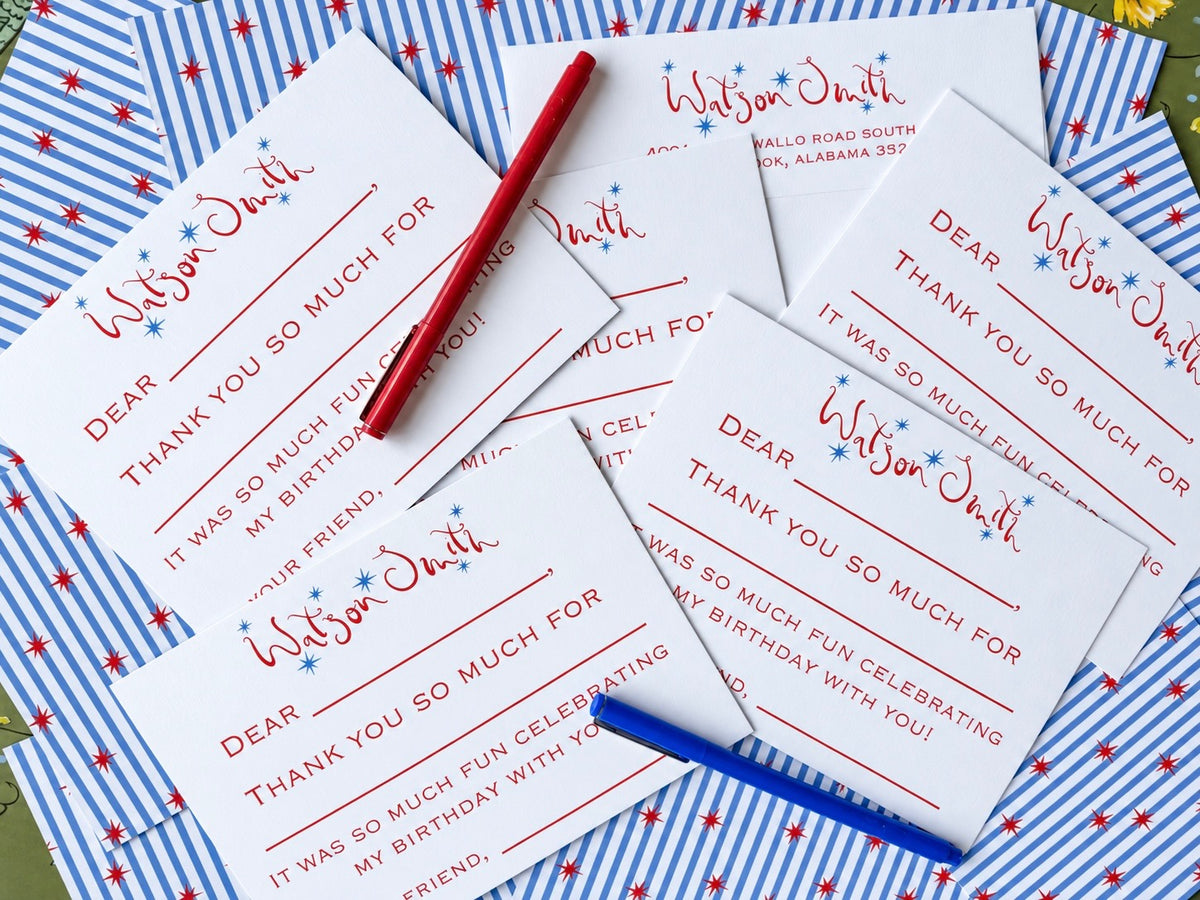 Watson Smith
WALLO ROAD SOUTH
OOK, ALABAMA 352
Watson Smith
DEAR ,
THANK YOU SO MUCH FOR
IT WAS SO MUCH FUN CE ING
MY BIRTHDA H YOU!
YOUR FRIEND,
Smith
,
MUCH FOR
MUC N CEL
WIT
Watson Smith
DEAR ,
THANK YOU SO MUCH FOR
IT WAS SO MUCH FUN CE
NG
Watson Smith
DEAR ,
THANK YOU SO MUCH FOR
WAS SO MUCH FUN CELEBRATING
MY BIRTHDAY WITH YOU!
ND,
Watson Smith
DEAR ,
THANK YOU SO MUCH FOR
IT WAS SO MUCH FUN CELEBRATING
MY BIRTHDAY WITH YO
FRIEND,